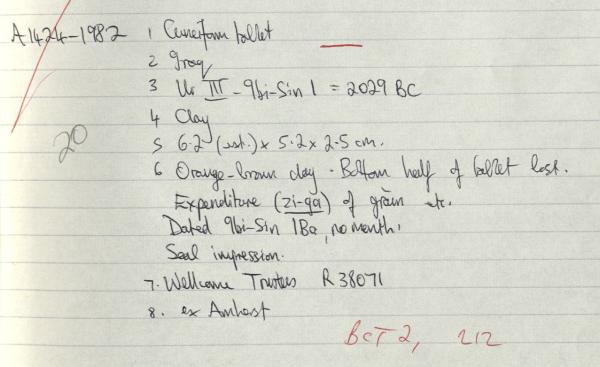 A1424-1982 1 Cuneiform tablet
2 Iraq
3 Ur III - Ibi-Sin 1 = 2029 BC
4 Clay
20
5 6.2 (est.) x 5.2 x 2.5 cm.
6 Orange-brown clay. Bottom half of tablet lost.
Expenditure (zi-ga) of grain etc.
Dated Ibi-Sin 1Ba, no month.
Seal impression.
7. Wellcome Trustees R38071
8. ex Amherst
BCT 2, 212